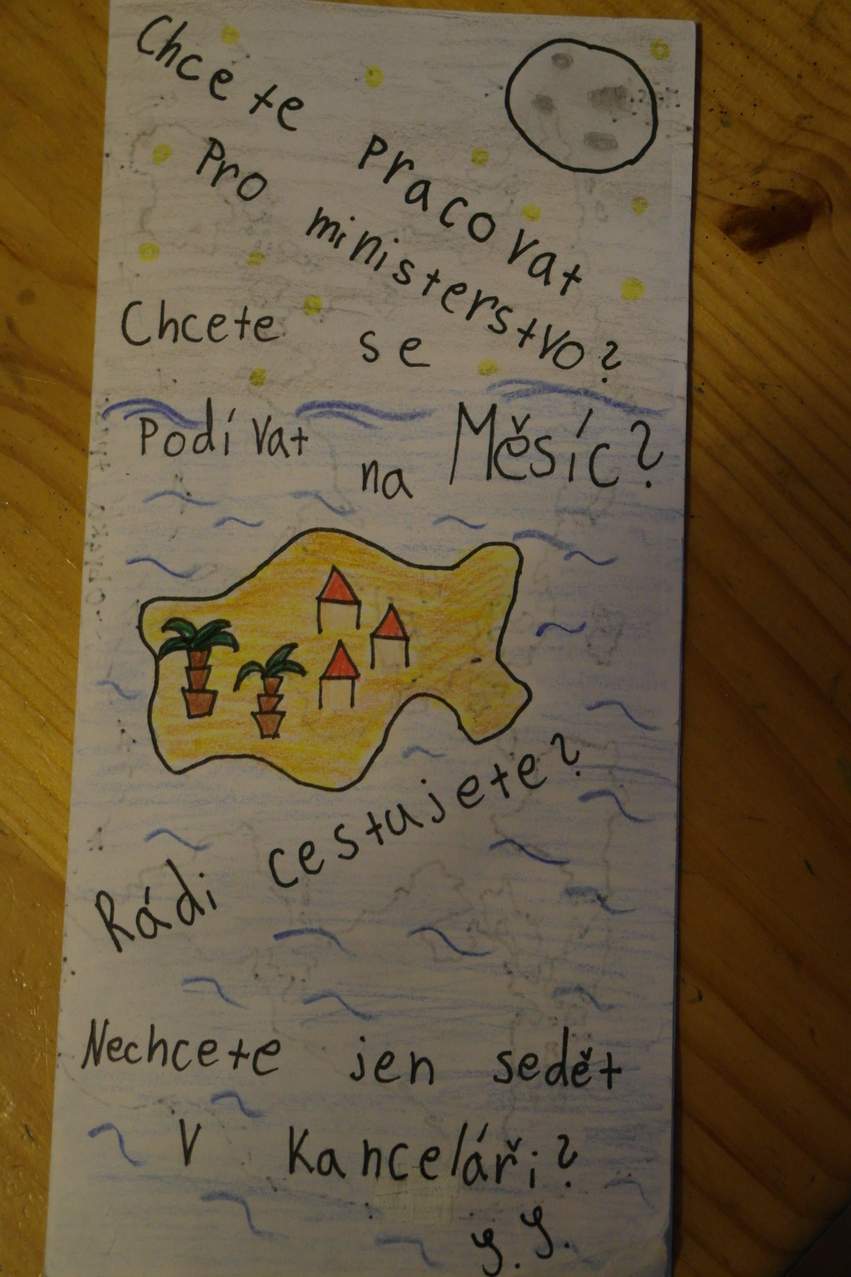 Chcete pracovat
pro ministerstvo?
Chcete se
podívat na Měsíc?
Rádi cestujete?
Nechcete jen sedět
v kanceláři?